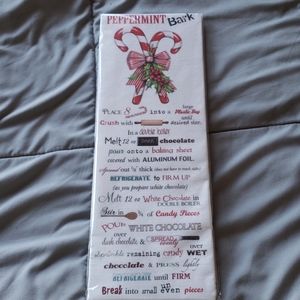 PEPPERMINT Bark
PLACE 8 into a large Plastic Bag
Crush with until desired size.
In a double boiler
Melt 12 oz dark chocolate
pour onto a baking sheet
covered with ALUMINUM FOIL.
Spread out ⅛" thick (does not have to reach sides)
REFRIGERATE to FIRM UP
(as you prepare white chocolate)
Melt 12 oz White Chocolate in DOUBLE BOILER
Stir in ¾ of Candy Pieces
POUR WHITE CHOCOLATE
over dark chocolate & SPREAD evenly over
sprinkle remaining candy over WET
chocolate & PRESS lightly
REFRIGERATE until FIRM
Break into small even pieces